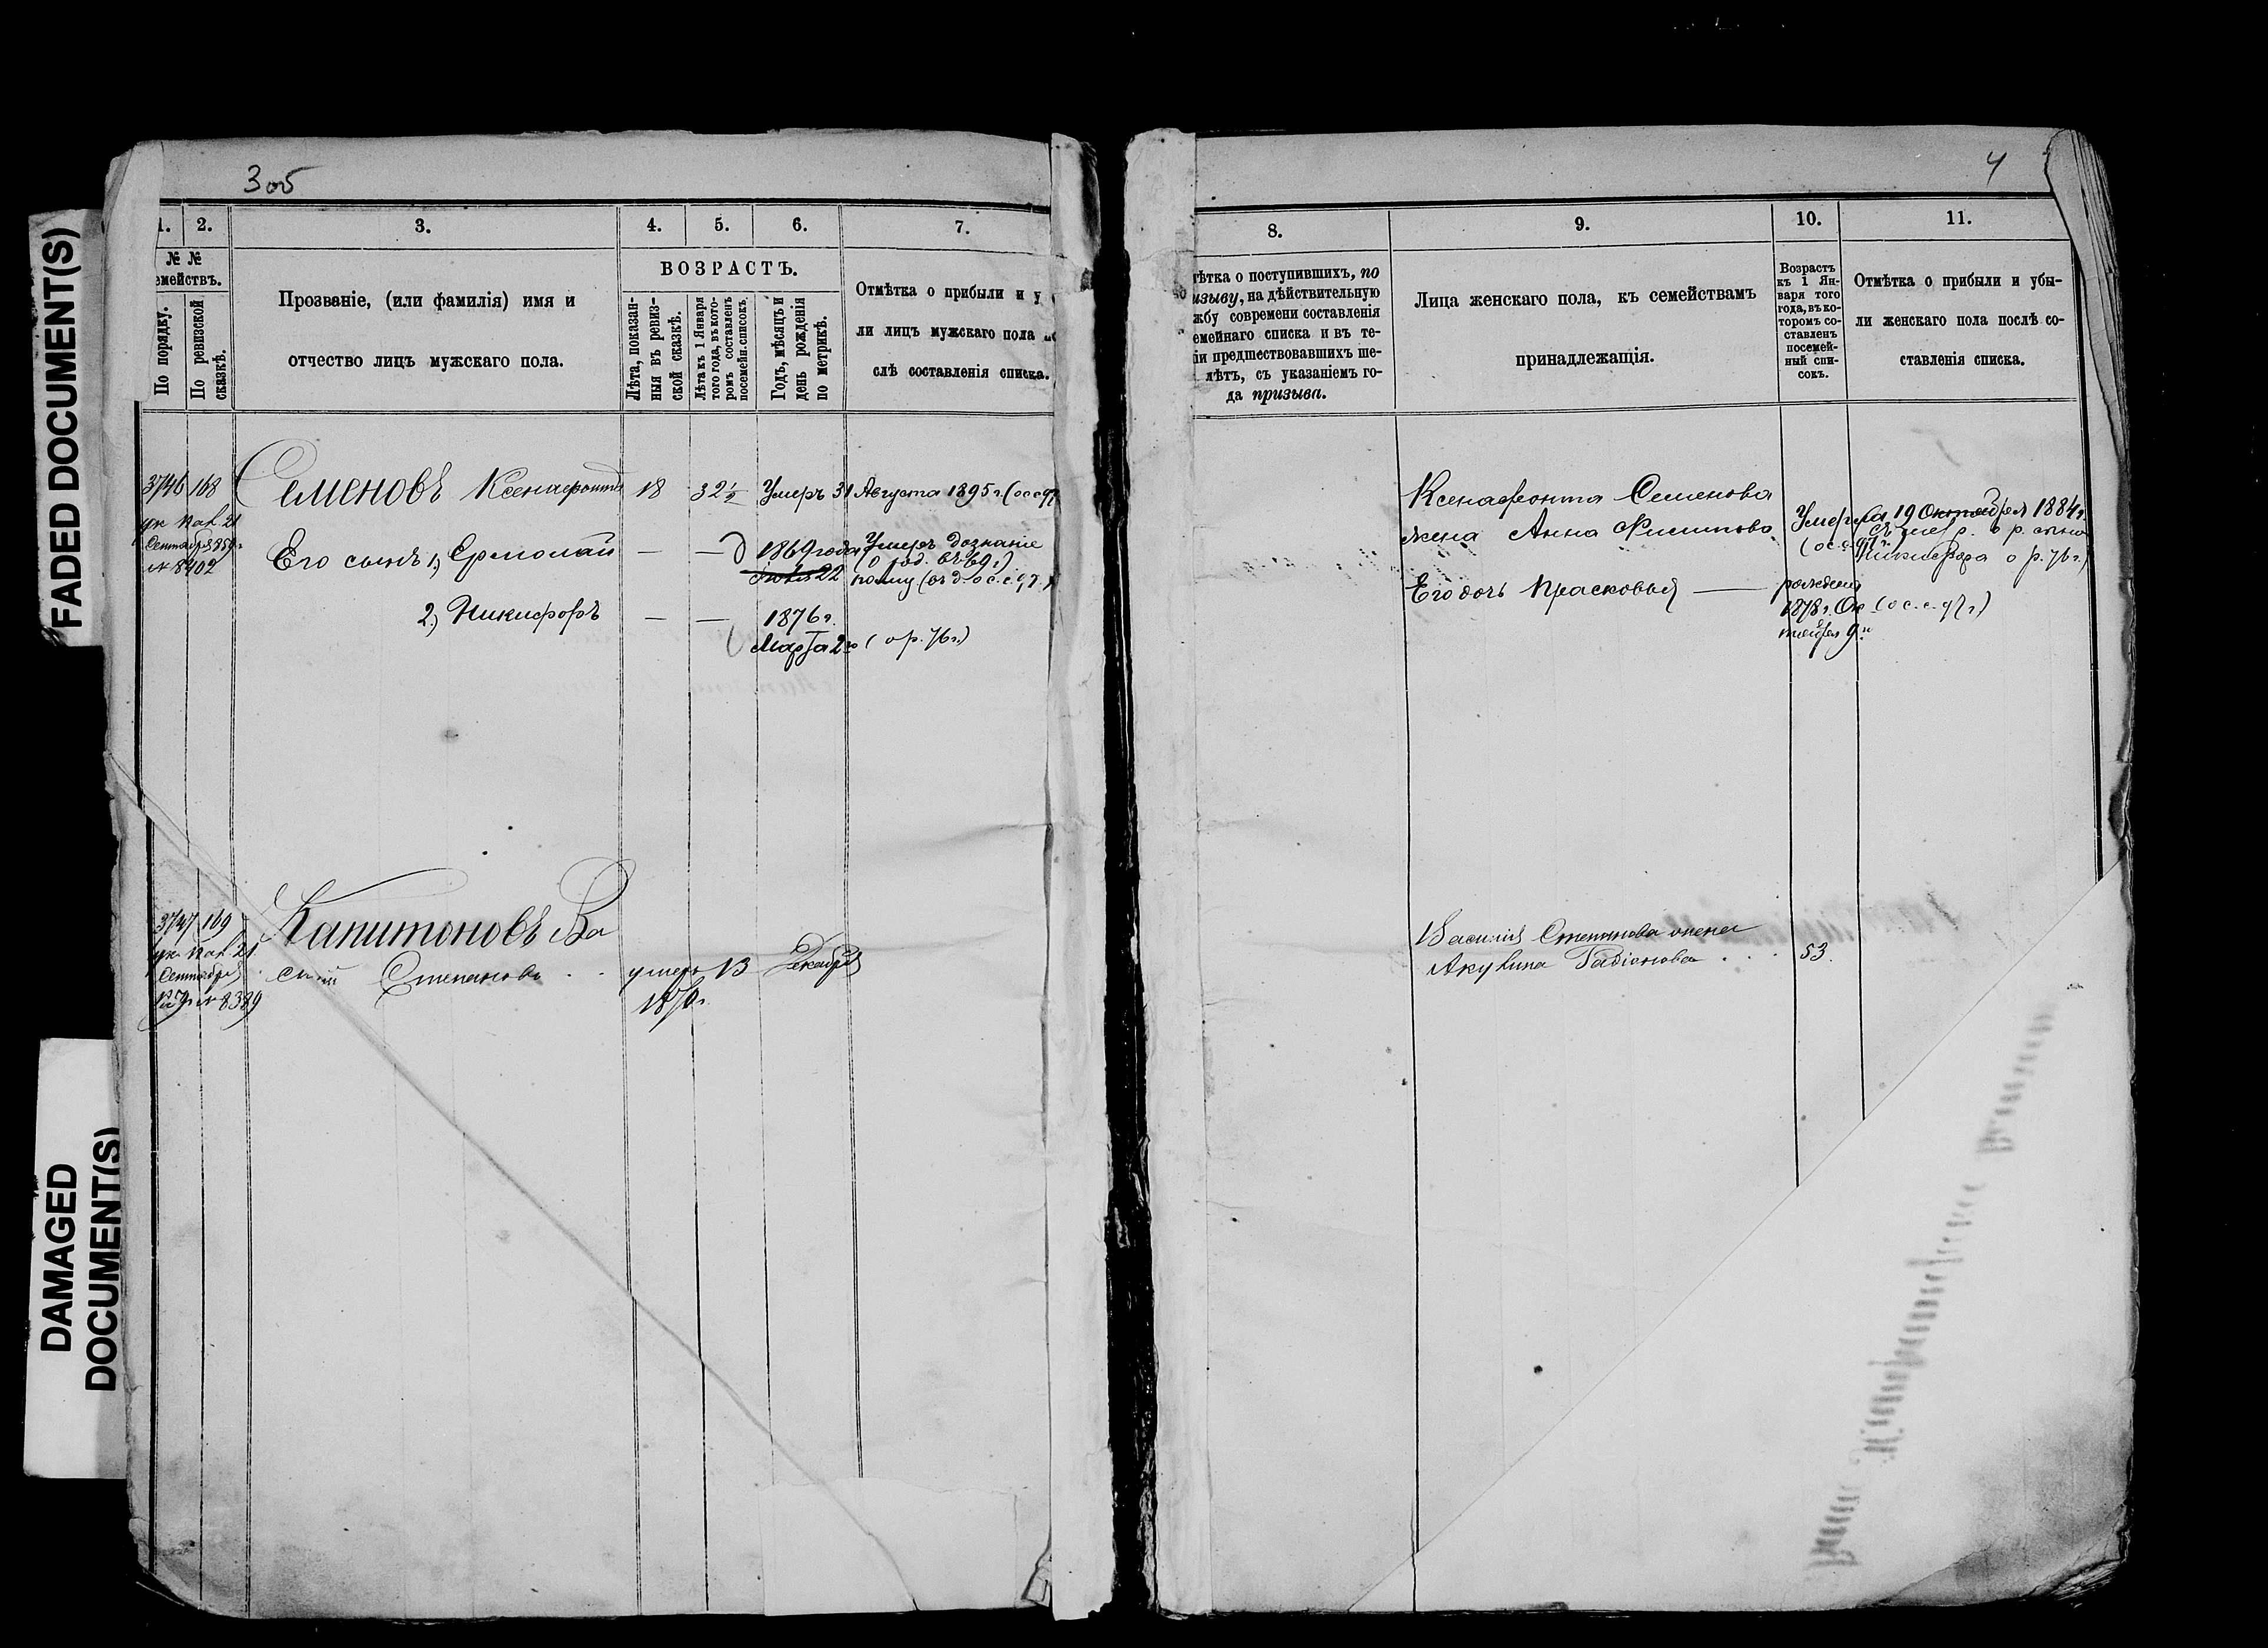 FADED DOCUMENT(S)
DAMAGED
DOCUMENT(S)
3об
1. 2. 3. 4. 5. 6. 7.
№ №
емействъ.
По порядку.
По ревизской
сказкѣ.
Прозваніе, (или фамилія) имя и
отчество лицъ мужскаго пола.
ВОЗРАСТЪ.
Лѣта, показан-
ныя въ ревиз-
ской сказкѣ.
Лѣта къ 1 Января
того года, въ кото-
ромъ составленъ
посемейн. списокъ.
Годъ, мѣсяцъ и
день рожденія
по метрикѣ.
Отмѣтка о прибыли и у
ли лицъ мужскаго пола
слѣ составленія списка.
3746 168 Семеновъ Ксенафонтъ 18 32½ Умеръ 31 Августа 1895 г. (
ук Каз. 21
Сентября 859 г
№ 8402
Его сынъ 1) Ермолай — — 1869 года Умеръ дознаніе
(о род. въ 69 г.)
22
2) Никифоръ — — 1876 г.
Марта 2го (о р. 76 г.)
3747 169 Капитоновъ Ва
ук. Каз. 21
Сентября
№ 8389
силій Степановъ . . умеръ 13 Декабря
1870 г.
4
8. 9. 10. 11.
тѣтка о поступившихъ, по
изыву, на дѣйствительную
жбу современи составленія
емейнаго списка и въ те-
іи предшествовавшихъ ше-
лѣтъ, съ указаніемъ го-
да призыва.
Лица женскаго пола, къ семействамъ
принадлежащія.
Возрастъ
къ 1 Ян-
варя того
года, въ ко-
торомъ со-
ставленъ
посемей-
ный спи-
сокъ.
Отмѣтка о прибыли и убы-
ли женскаго пола послѣ со-
ставленія списка.
Ксенафонта Семенова
жена Анна Филипова
Умерла 19 Октября 1884 г.
о р. сына
Никифора о р. 76 г.)
Его дочь Прасковья — рожден
1878 г. Ок (о с. с. 97 г.)
тября 9го
Василія Степанова жена
Акулина Радіонова . . . 53.